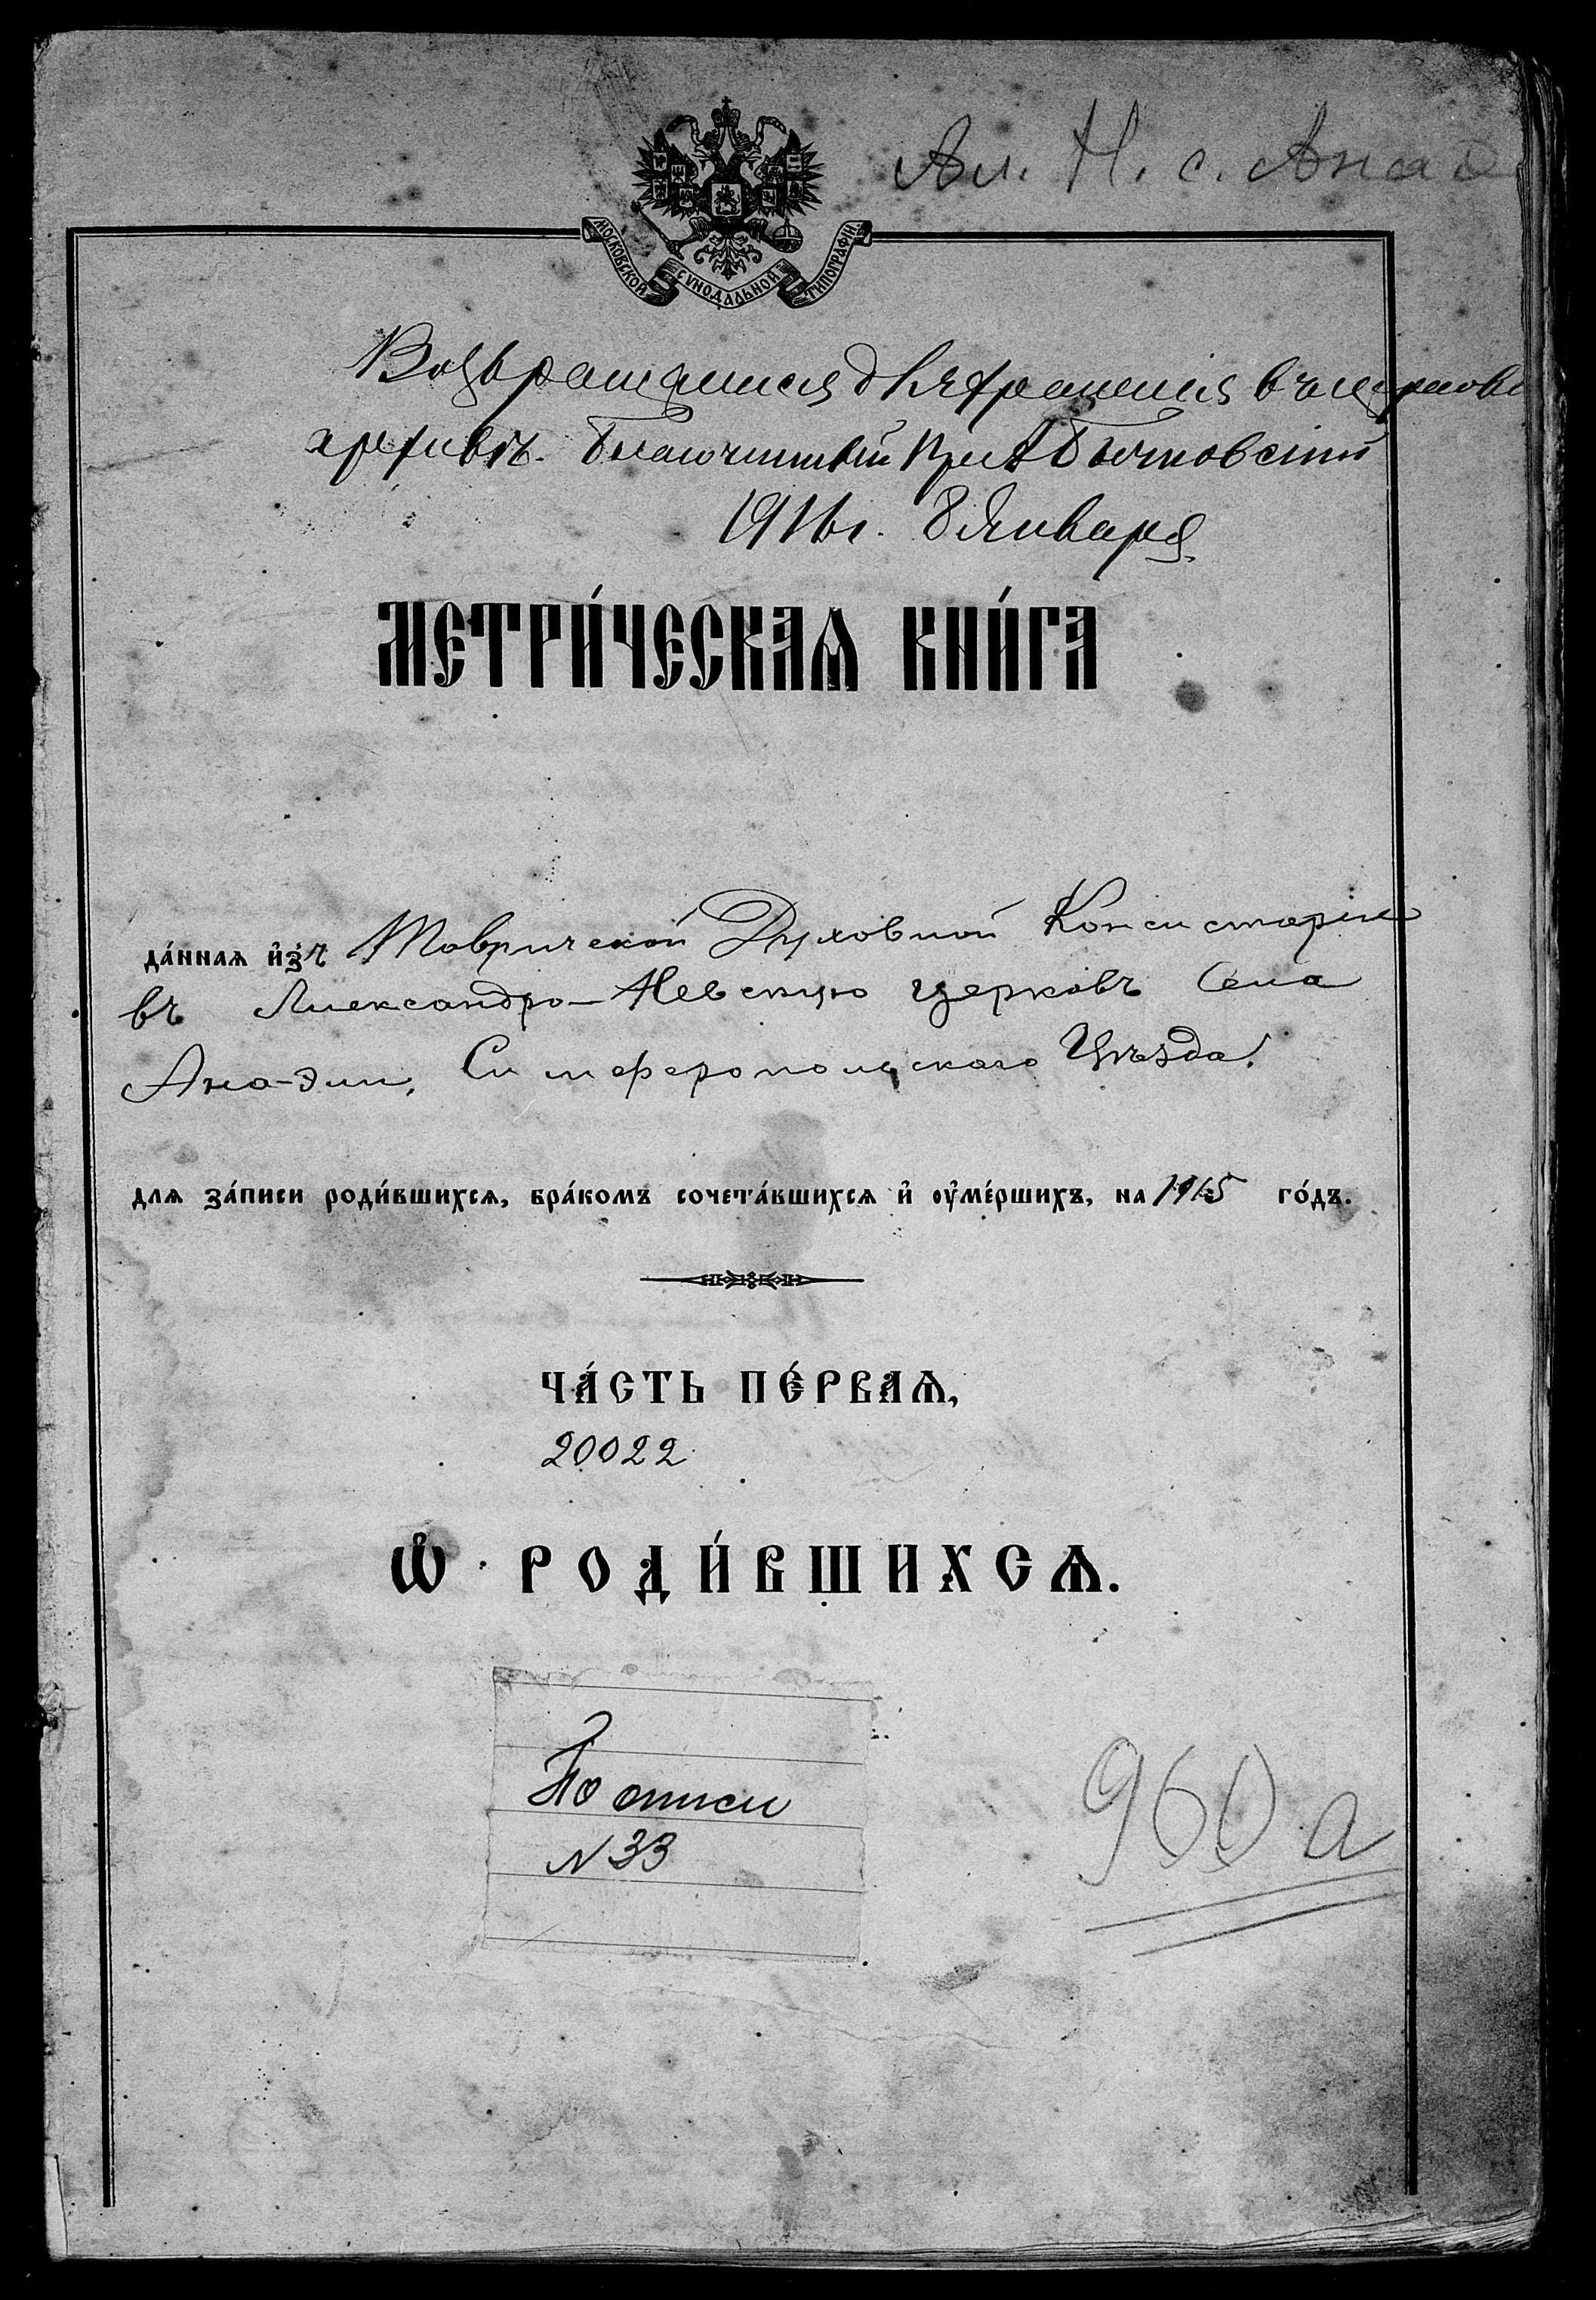 Ал. Н. с. Анаэ
МОСКОВСКОЙ СѴНОДАЛЬНОЙ ТИПОГРАФІИ
Возвращается для храненія въ церковн
архивъ. Благочинный Пр. А Бычковскій
1916 г. 8 Января
МЕТРИ́ЧЕСКАѦ КНИ́ГА
да́ннаѧ и҆зъ Таврической Духовной Консисторіи
въ Александро-Невскую церковь Села
Ана-Эли, Симферопольскаго Уѣзда.
длѧ за́писи роди́вшихсѧ, бра́комъ сочета́вшихсѧ и҆ оу҆ме́ршихъ, на 1915 го́дъ.
ЧА́СТЬ ПЕ́РВАѦ,
20022
Ѡ҆ РОДИ́ВШИХСѦ.
По описи
N 33
960 а